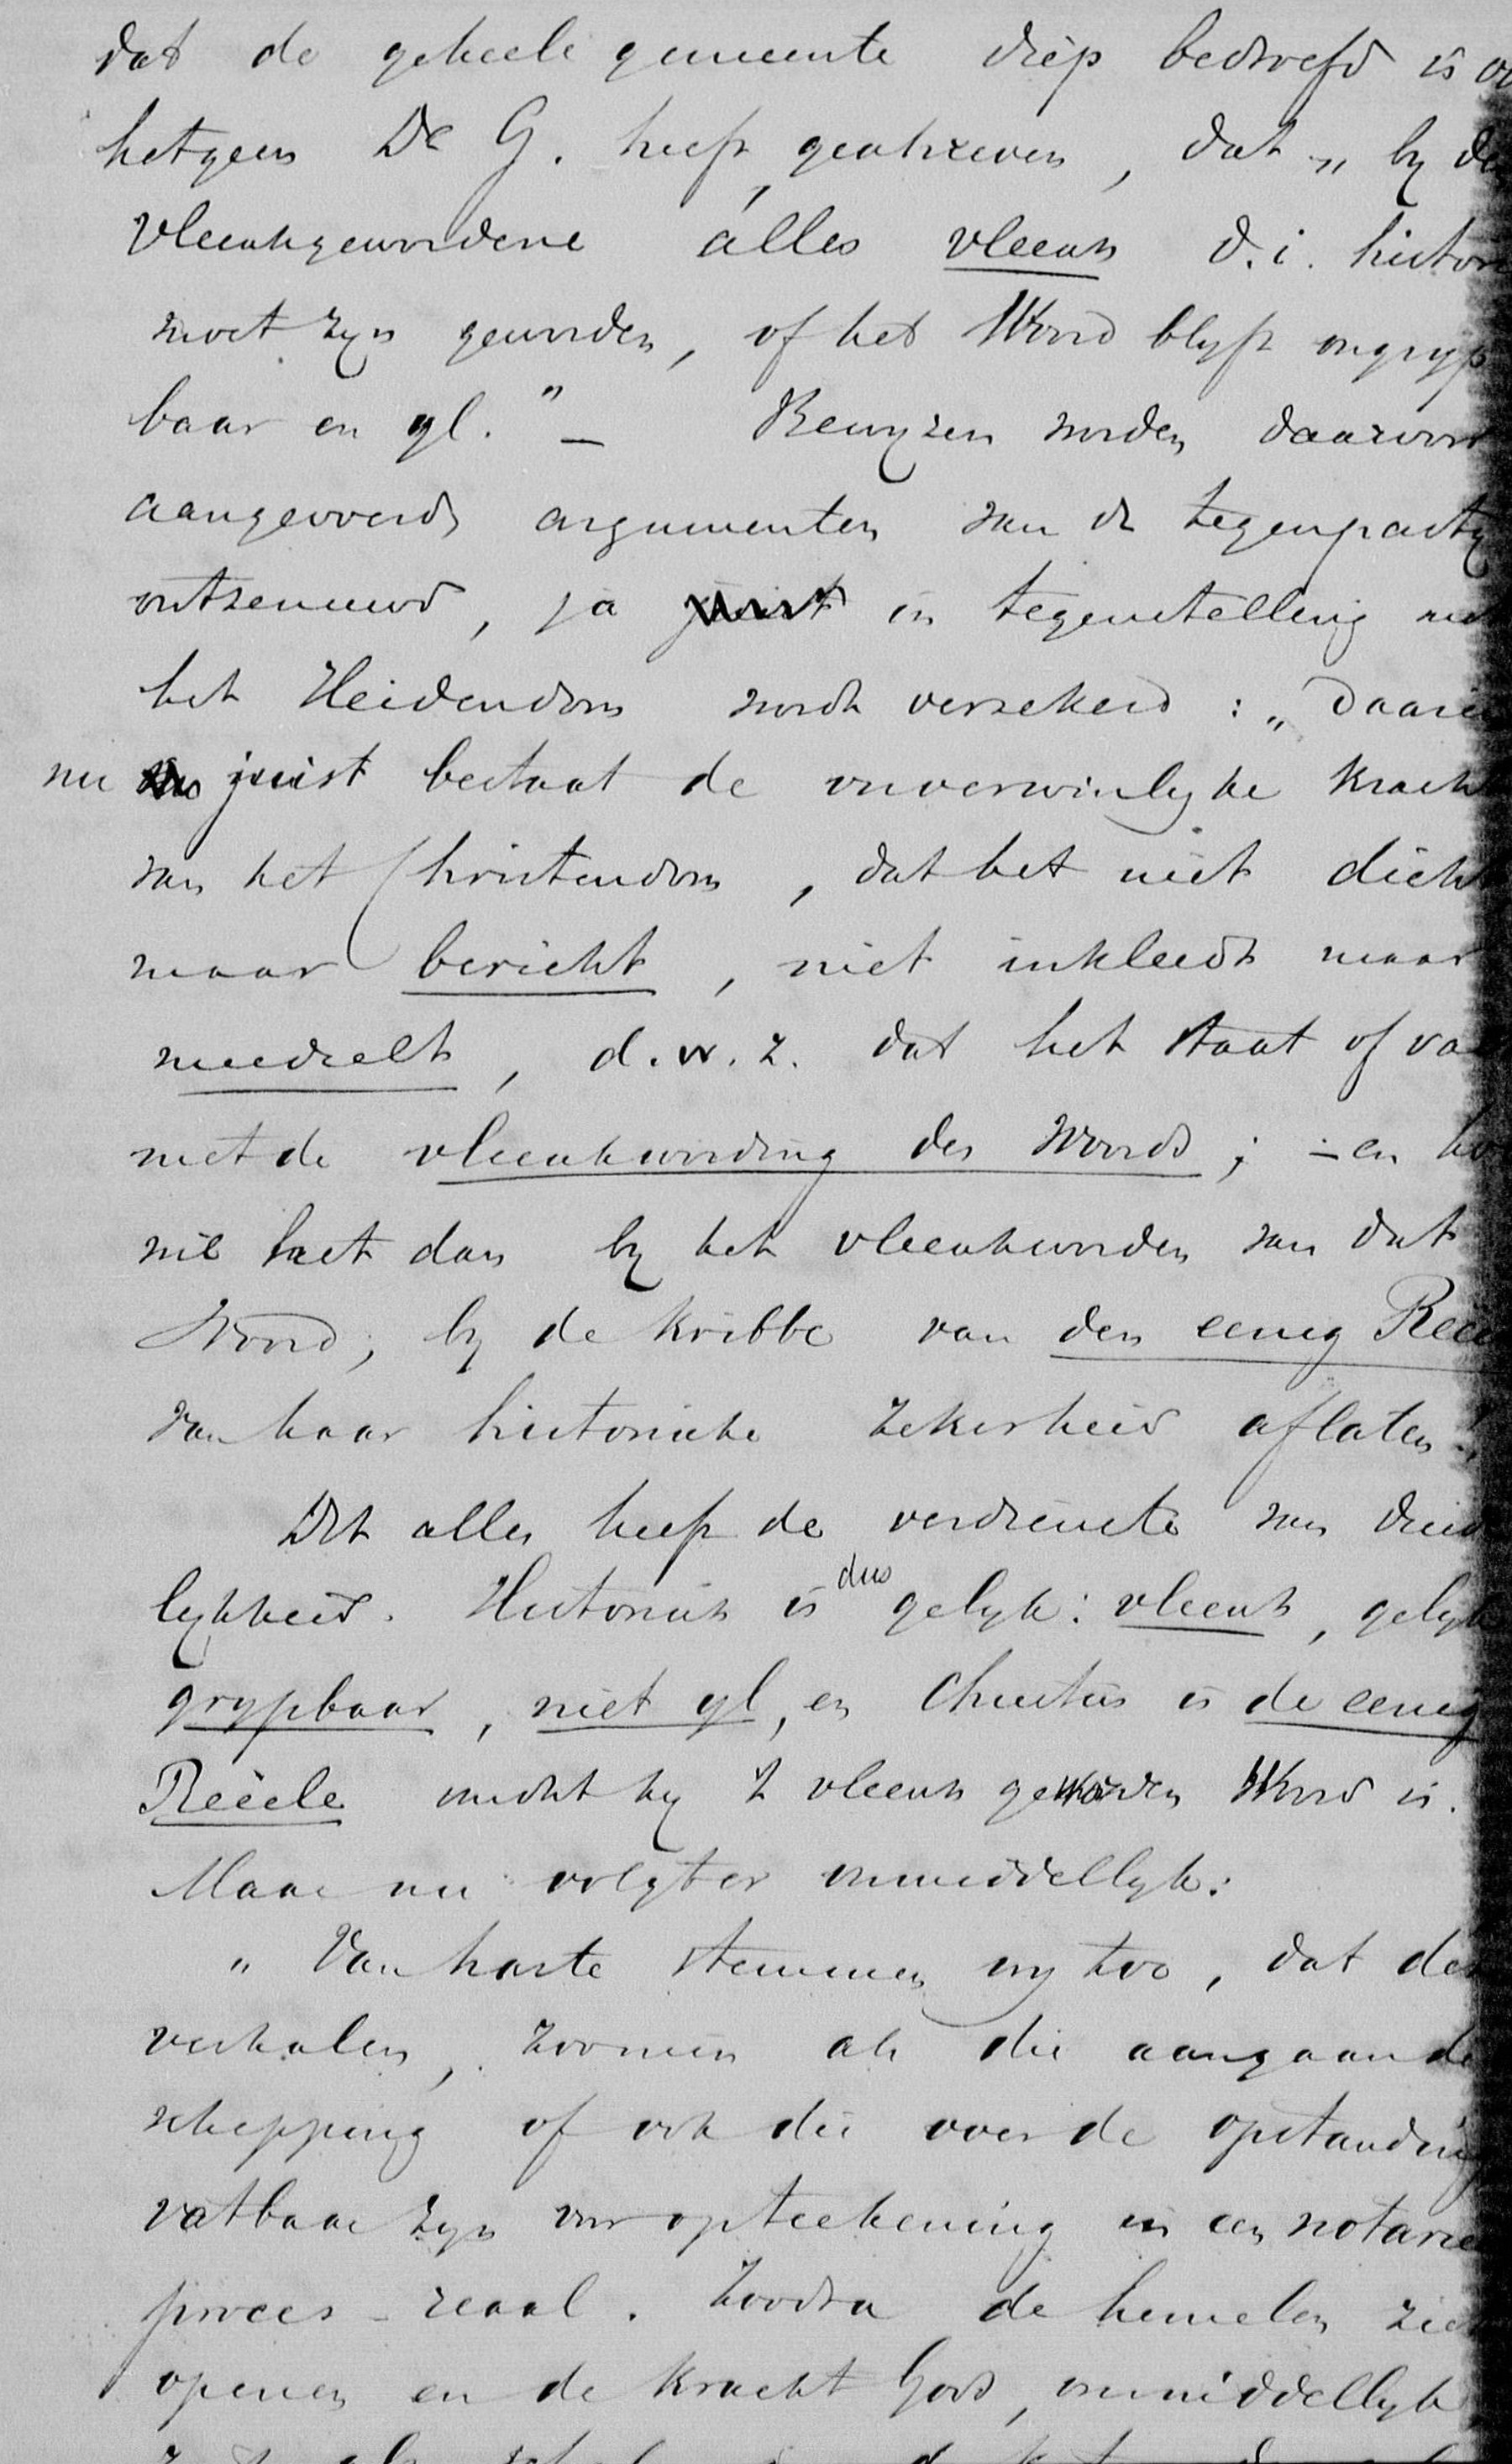 dat de geheele gemeente diep bedroefd is
hetgeen Dr G. heeft geschreven, dat „ by de
vleeschgewordene álles vleesch d.i. histor
moet zyn geworden, of het Woord blyft ongryp
baar en yl." — Bewyzen worden daarvoor
aangevoerd, argumenten van de tegenparty
ontzenuwd, ja juist in tegenstelling met
het Heidendom wordt verzekerd: „ Daarin
nu juist bestaat de onverwinlyke kracht
van het Christendom, dat het niet dicht
maar bericht, niet inkleedt maar
meedeelt, d.w.z. dat het staat of va
met de vleeschwording des Woords; — en ho
wil het dan by het vleeschworden van dat
Woord, by de kribbe van den eenig Reë
van haar historische zekerheid aflaten!
Dit alles heeft de verdienste van duide
lykheid. Historisch is dus gelyk: vleesch, gelyk
grypbaar, niet yl, en Christus is de eenig
Reëele omdat hy 't vleesch geworden Woord is.
Maar nu volgt er onmiddellyk:
„ Van harte stemmen wy toe, dat de
verhalen, zoomin als die aangaande
schepping of ook die over de opstanding
vatbaar zyn voor opteekening in een notarie
proces-veraal. Zoodra de hemelen zich
openen en de kracht Gods, onmiddellyk